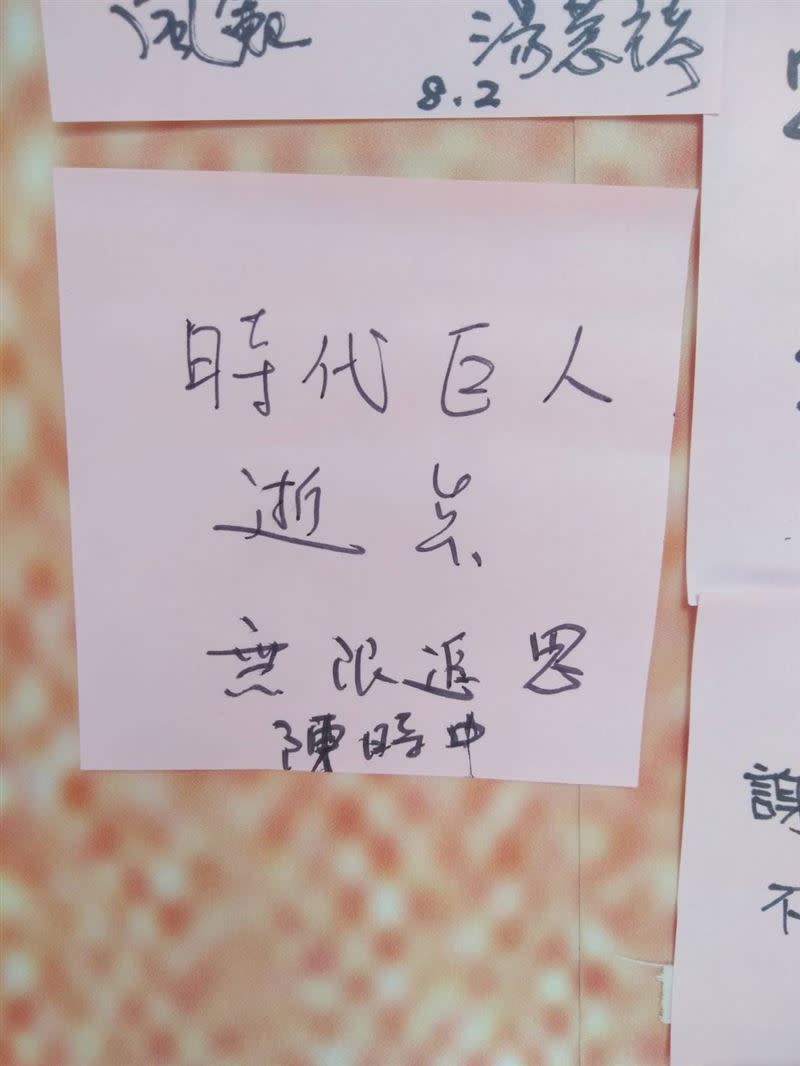 湯蕙禎
8.2
時代巨人
逝矣
無限追思
陳時中
不